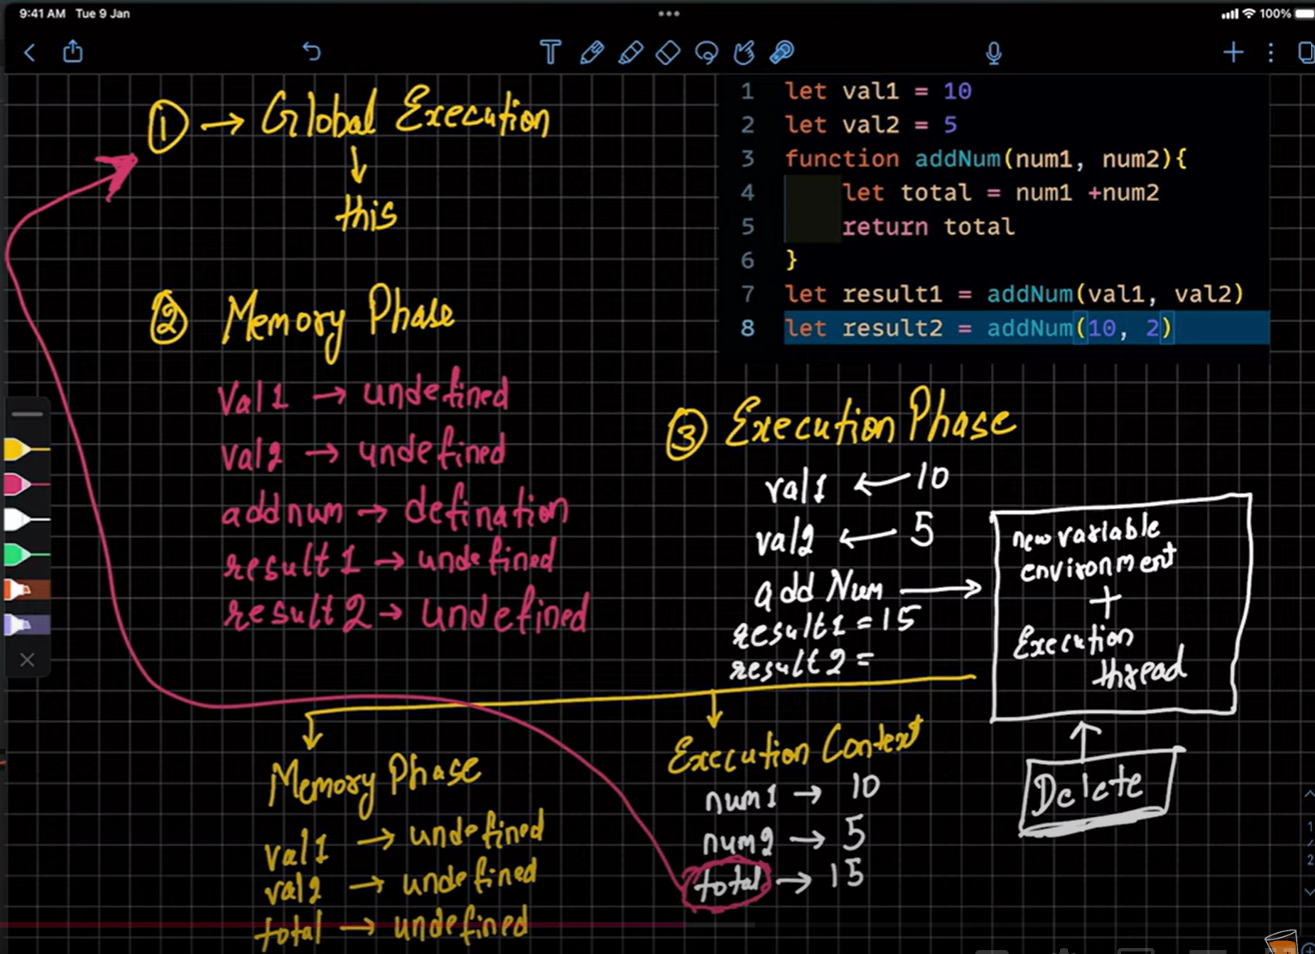 9:41 AM Tue 9 Jan
100%
① → Global Execution
↓
this
② Memory Phase
val1 → undefined
val2 → undefined
addnum → defination
result1 → undefined
result2 → undefined
1 let val1 = 10
2 let val2 = 5
3 function addNum(num1, num2){
4 let total = num1 +num2
5 return total
6 }
7 let result1 = addNum(val1, val2)
8 let result2 = addNum(10, 2)
③ Execution Phase
val1 ← 10
val2 ← 5
addNum →
result1 = 15
result2 =
new variable
environment
+
Execution
thread
Delete
Memory Phase
val1 → undefined
val2 → undefined
total → undefined
Execution Context
num1 → 10
num2 → 5
total → 15